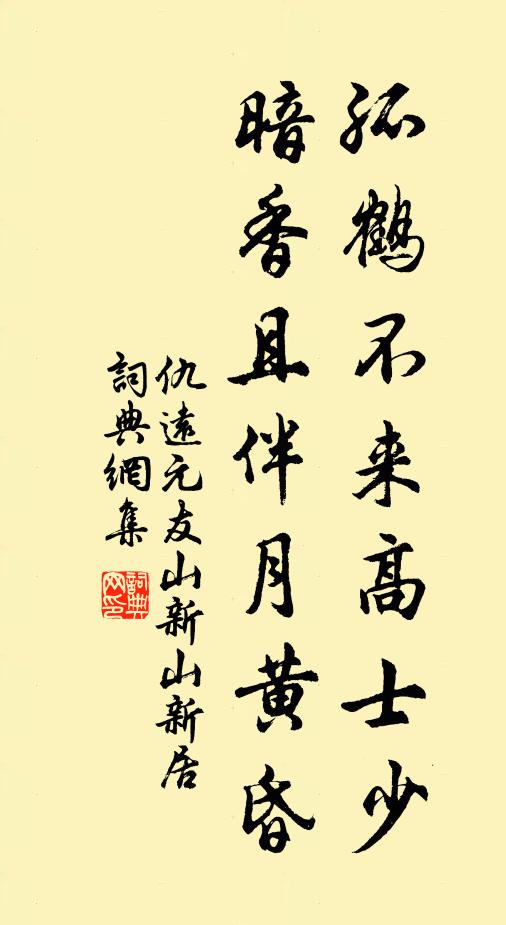 孤鶴不来高士少
暗香且伴月黄昏
仇遠元友山新山新居
詞典網集
詞典网印